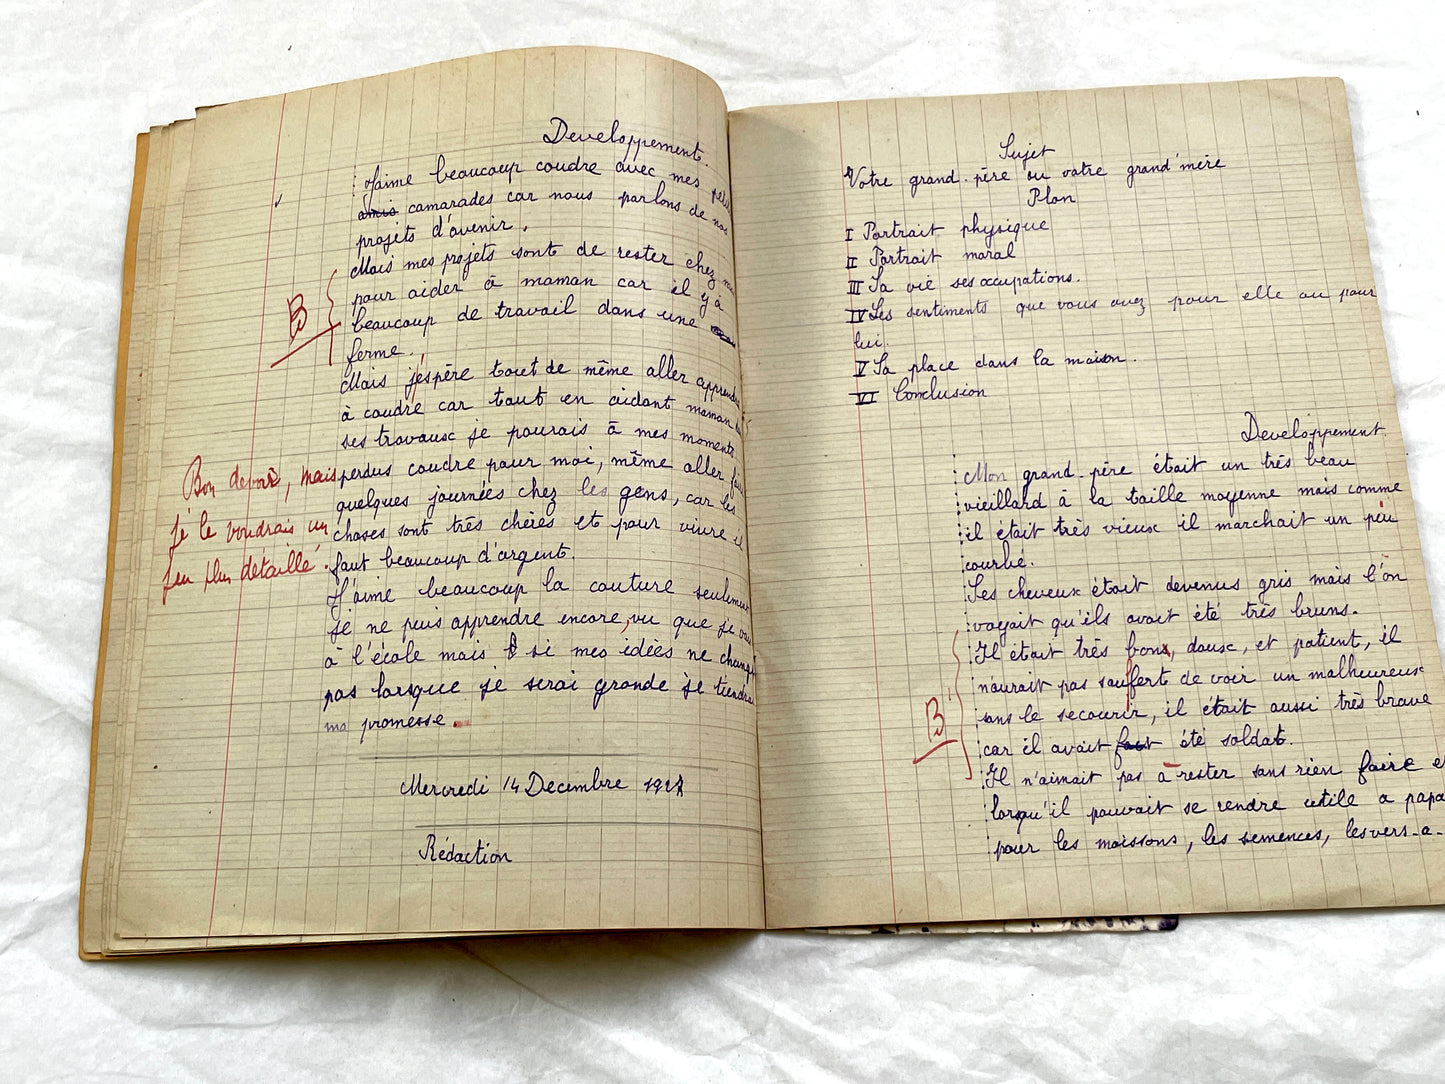 Developpement.
J'aime beaucoup coudre avec mes petits
amis camarades car nous parlons de nos
projets d'avenir.
Mais mes projets sont de rester chez
pour aider à maman car il y à
beaucoup de travail dans une
ferme.
B
Mais j'éspère tout de même aller apprendre
à coudre car tout en aidant maman
ses travause je pourais à mes moments
perdus coudre pour moi, même aller faire
quelques journées chez les gens, car les
choses sont très chères et pour vivre il
faut beaucoup d'argent.
Bon devoir, mais
je le voudrais un
peu plus détaillé.
J'aime beaucoup la couture seulement
je ne puis apprendre encore, vu que je vais
à l'école mais si mes idées ne changent
pas lorsque je serai grande je tiendrai
ma promesse.
Mercredi 14 Decembre 192
Rédaction
Sujet
Votre grand-père ou votre grand'mère
Plan
I Portrait physique
II Portrait moral
III Sa vie ses occupations.
IV Les sentiments que vous avez pour elle ou pour
lui.
V Sa place dans la maison.
VI Conclusion
Developpement
Mon grand-père était un très beau
vieillard à la taille moyenne mais comme
il était très vieux il marchait un peu
courbé.
Ses cheveux étoit devenus gris mais l'on
voyait qu'ils avait été très bruns.
Il était très bon, doux, et patient, il
n'aurait pas souffert de voir un malheureux
sans le secourir, il était aussi très brave
car il avait fait été soldat.
B
Il n'aimait pas à rester sans rien faire et
lorsqu'il pouvait se rendre utile a papa
pour les moissons, les semences, les vers-a-